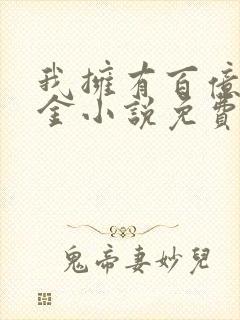 我擁有百億
金小說免費
鬼帝妻妙兒